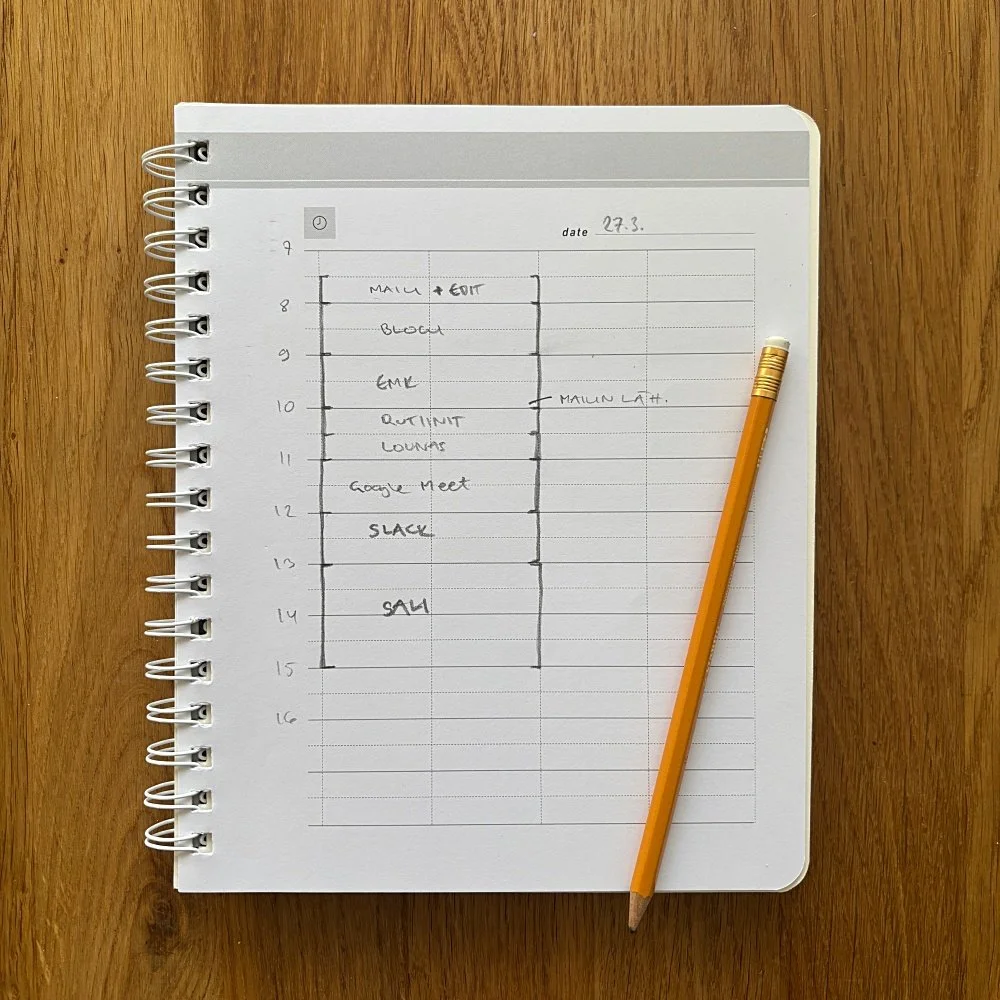 date 27.3.
7
MAILI + EDIT
8
BLOGI
9
EMK
10
MAILIN LÄH.
RUTIINIT
LOUNAS
11
Google Meet
12
SLACK
13
SALI
14
15
16